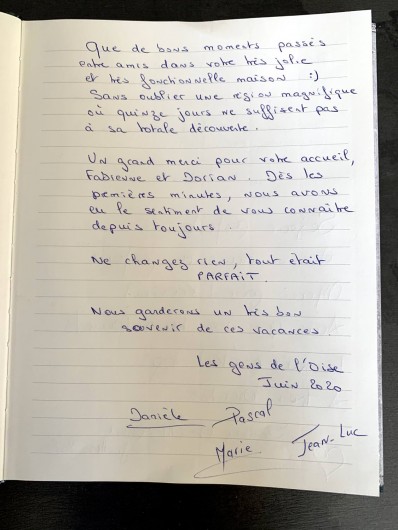 Que de bons moments passés
entre amis dans votre très jolie
et très fonctionnelle maison :)
Sans oublier une région magnifique
où quinze jours ne suffisent pas
à sa totale découverte.
Un grand merci pour votre accueil,
Fabienne et Dorian. Dès les
premières minutes, nous avons
eu le sentiment de vous connaître
depuis toujours.
Ne changez rien, tout était
PARFAIT.
Nous garderons un très bon
souvenir de ces vacances.
Les gens de l'Oise
Juin 2020
Danièle Pascal
Marie Jean-Luc